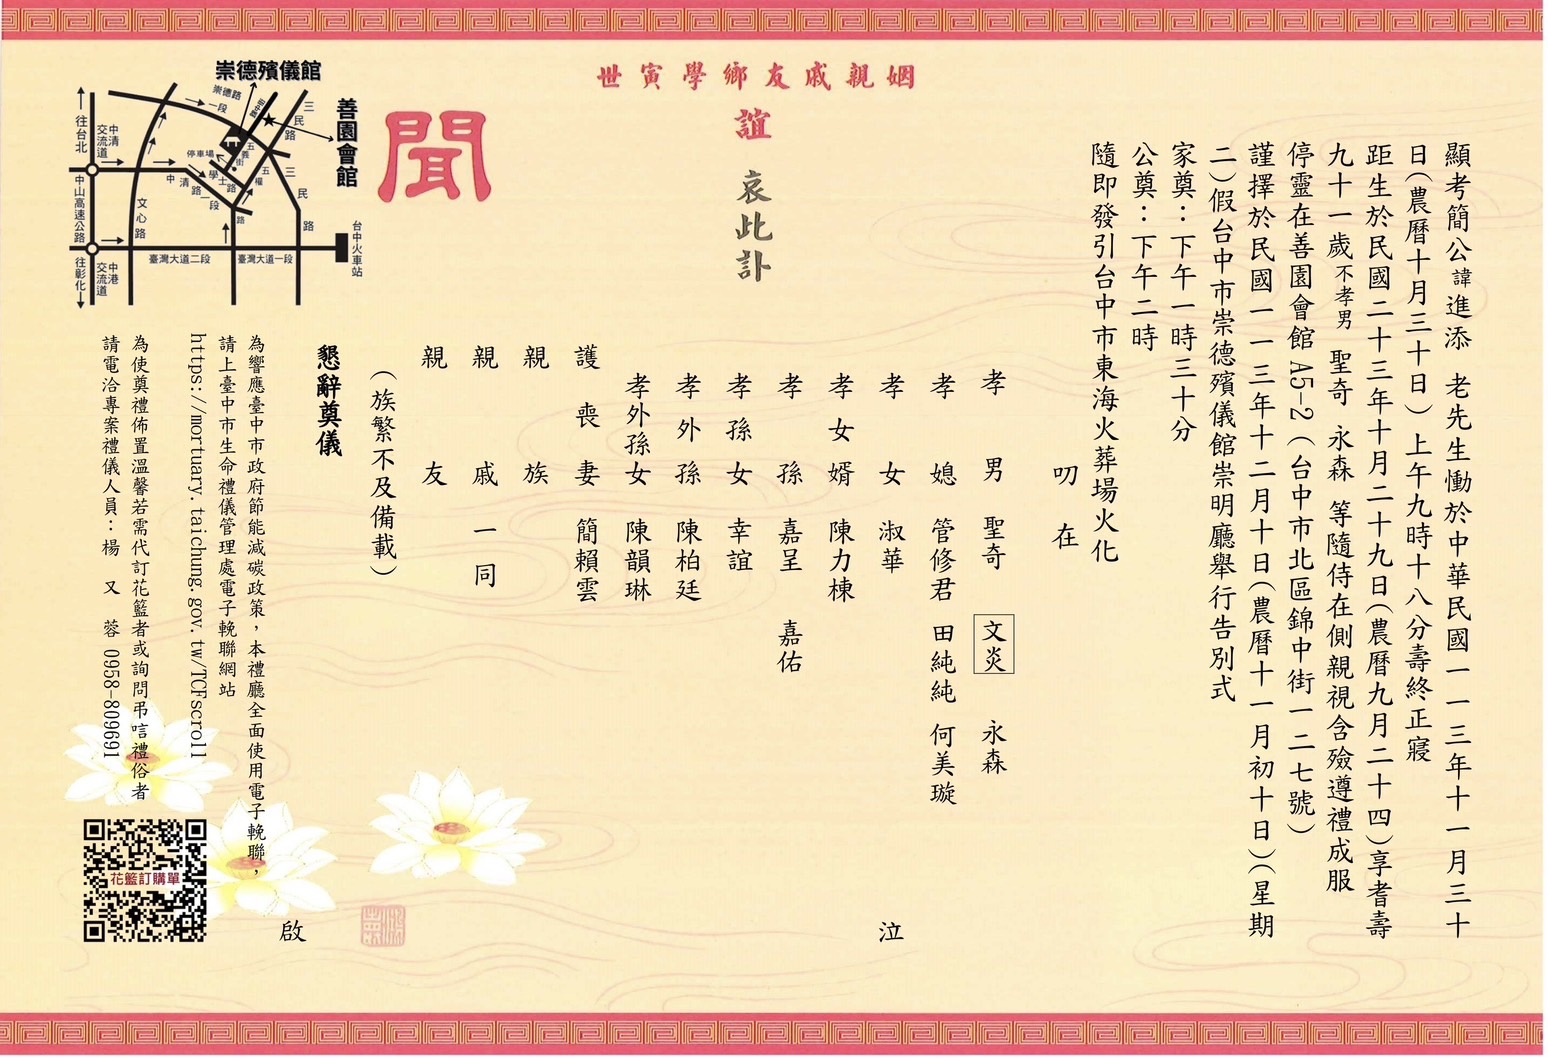 顯考簡公諱進添 老先生慟於中華民國一一三年十一月三十
日(農曆十月三十日)上午九時十八分壽終正寢
距生於民國二十三年十月二十九日(農曆九月二十四)享耆壽
九十一歲不孝男 聖奇 永森 等隨侍在側親視含殮遵禮成服
停靈在善園會館 A5-2(台中市北區錦中街一二七號)
謹擇於民國一一三年十二月十日(農曆十一月初十日)(星期
二)假台中市崇德殯儀館崇明廳舉行告別式
家奠:下午一時三十分
公奠:下午二時
隨即發引台中市東海火葬場火化
叨 在
姻親戚友鄉學寅世
誼
哀此訃
聞
孝男 聖奇 文炎 永森
孝媳 管修君 田純純 何美璇
孝女 淑華
孝女婿 陳力棟
孝孫 嘉呈 嘉佑
孝孫女 幸誼
孝外孫 陳柏廷
孝外孫女 陳韻琳
護喪妻 簡賴雲
親族
親戚一同
親友
泣
啟
(族繁不及備載)
懇辭奠儀
為響應臺中市政府節能減碳政策,本禮廳全面使用電子輓聯,
請上臺中市生命禮儀管理處電子輓聯網站
https://mortuary.taichung.gov.tw/TCFscroll
為使奠禮佈置溫馨若需代訂花籃者或詢問弔唁禮俗者
請電洽專案禮儀人員:楊 又 蓉 0958-809691
花籃訂購單
崇德殯儀館
善園會館
崇德路一段
三民路
三民路
五義街
五權
路
停車場
學士路
中清路一段
文心路
中清交流道
往台北
中山高速公路
往彰化
中港交流道
臺灣大道二段
臺灣大道一段
台中火車站